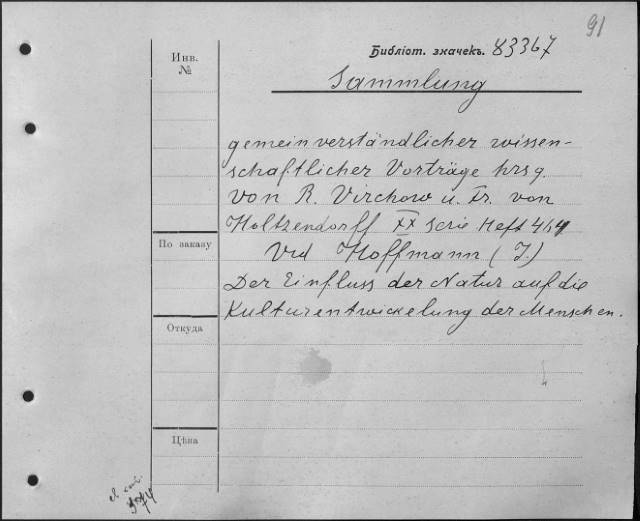 91
Библіот. значекъ. 83367
Инв.
№
Sammlung
gemeinverständlicher wissen-
schaftlicher Vorträge hrsg.
von R. Virchow u. Fr. von
Holtzendorff XX Serie Heft
По заказу
Vid Hoffmann (J.)
Der Einfluss der Natur auf die
Kulturentwickelung der Menschen.
Откуда
Цѣна